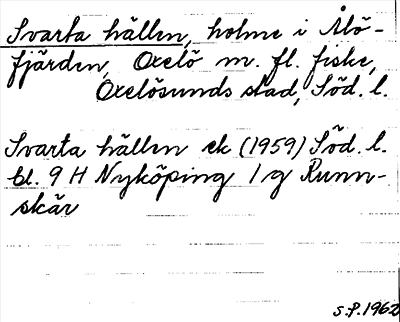 Svarta hällen, holme i Ålö-
fjärden, Oxelö m. fl. fiske,
Oxelösunds stad, Söd. l.
Svarta hällen ek (1959) Söd. l.
bl. 9 H Nyköping 1 g Runn-
skär
S.P. 1962